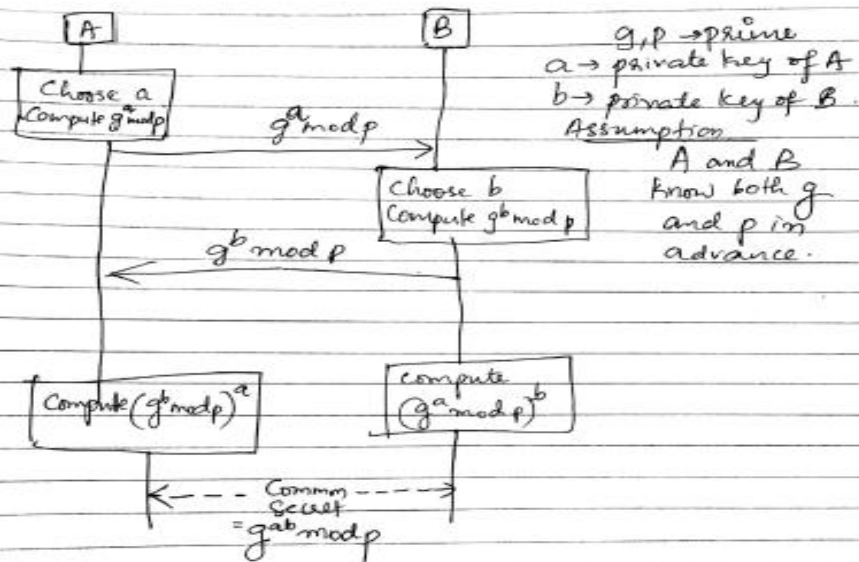 A
B
g,p → prime
a → private key of A
b → private key of B.
Assumption
A and B
know both g
and p in
advance.
Choose a
Compute g^a mod p
g^a mod p
Choose b
Compute g^b mod p
g^b mod p
Compute (g^b mod p)^a
compute
(g^a mod p)^b
Common
secret
= g^ab mod p